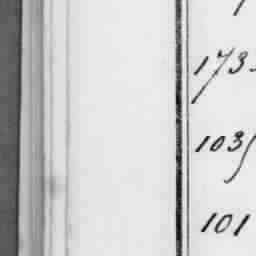 173
103
101